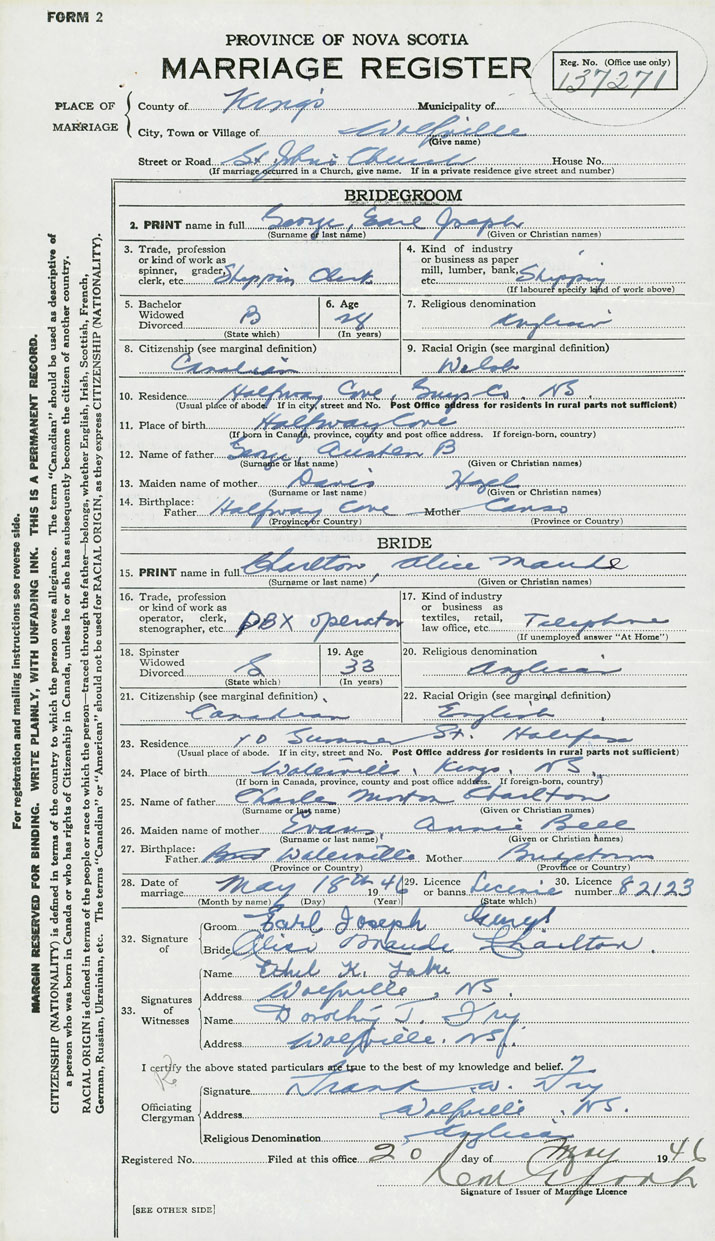 FORM 2
PROVINCE OF NOVA SCOTIA
MARRIAGE REGISTER
Reg. No. (Office use only)
137271
PLACE OF MARRIAGE
County of Kings Municipality of
City, Town or Village of Wolfville
(Give name)
Street or Road St John's Church House No.
(If marriage occurred in a Church, give name. If in a private residence give street and number)
BRIDEGROOM
2. PRINT name in full George, Earl Joseph
(Surname or last name) (Given or Christian names)
3. Trade, profession or kind of work as spinner, grader, clerk, etc. Shippin Clerk
4. Kind of industry or business as paper mill, lumber, bank, etc. Shipping
(If labourer specify kind of work above)
5. Bachelor Widowed Divorced B
(State which)
6. Age 28
(In years)
7. Religious denomination
Anglican
8. Citizenship (see marginal definition)
Canadian
9. Racial Origin (see marginal definition)
Welsh
10. Residence Halfway Cove, Guys Co. NS
(Usual place of abode. If in city, street and No. Post Office address for residents in rural parts not sufficient)
11. Place of birth Halfway Cove
(If born in Canada, province, county and post office address. If foreign-born, country)
12. Name of father George Austen B
(Surname or last name) (Given or Christian names)
13. Maiden name of mother Davis Hazel
(Surname or last name) (Given or Christian names)
14. Birthplace: Father Halfway Cove Mother Canso
(Province or Country) (Province or Country)
BRIDE
15. PRINT name in full Charlton, Alice Maude
(Surname or last name) (Given or Christian names)
16. Trade, profession or kind of work as operator, clerk, stenographer, etc. PBX operator
17. Kind of industry or business as textiles, retail, law office, etc. Telephone
(If unemployed answer "At Home")
18. Spinster Widowed Divorced S
(State which)
19. Age 33
(In years)
20. Religious denomination
Anglican
21. Citizenship (see marginal definition)
Canadian
22. Racial Origin (see marginal definition)
English
23. Residence Summer St. Halifax
(Usual place of abode. If in city, street and No. Post Office address for residents in rural parts not sufficient)
24. Place of birth Waterville, Kings, NS.
(If born in Canada, province, county and post office address. If foreign-born, country)
25. Name of father Charles Morton Charlton
(Surname or last name) (Given or Christian names)
26. Maiden name of mother Evans, Annie Bell
(Surname or last name) (Given or Christian names)
27. Birthplace: Father Waterville Mother Bridgetown
(Province or Country) (Province or Country)
28. Date of marriage May 18th 1946
(Month by name) (Day) (Year)
29. Licence or banns Licence
(State which)
30. Licence number 82123
32. Signature of
Groom Earl Joseph George
Bride Alice Maude Charlton.
33. Signatures of Witnesses
Name Ethel K.
Address Wolfville, NS.
Name Dorothy T. Fry
Address Wolfville. NS.
I certify the above stated particulars are true to the best of my knowledge and belief.
Officiating Clergyman
Signature Frank W. Fry
Address Wolfville. NS.
Religious Denomination Anglican
Registered No. Filed at this office 20 day of May 1946
Signature of Issuer of Marriage Licence
[SEE OTHER SIDE]
For registration and mailing instructions see reverse side.
MARGIN RESERVED FOR BINDING. WRITE PLAINLY, WITH UNFADING INK. THIS IS A PERMANENT RECORD.
CITIZENSHIP (NATIONALITY) is defined in terms of the country to which the person owes allegiance. The term "Canadian" should be used as descriptive of
a person who was born in Canada or who has rights of Citizenship in Canada, unless he or she has subsequently become the citizen of another country.
RACIAL ORIGIN is defined in terms of the people or race to which the person—traced through the father—belongs, whether English, Irish, Scottish, French,
German, Russian, Ukrainian, etc. The terms "Canadian" or "American" should not be used for RACIAL ORIGIN, as they express CITIZENSHIP (NATIONALITY).